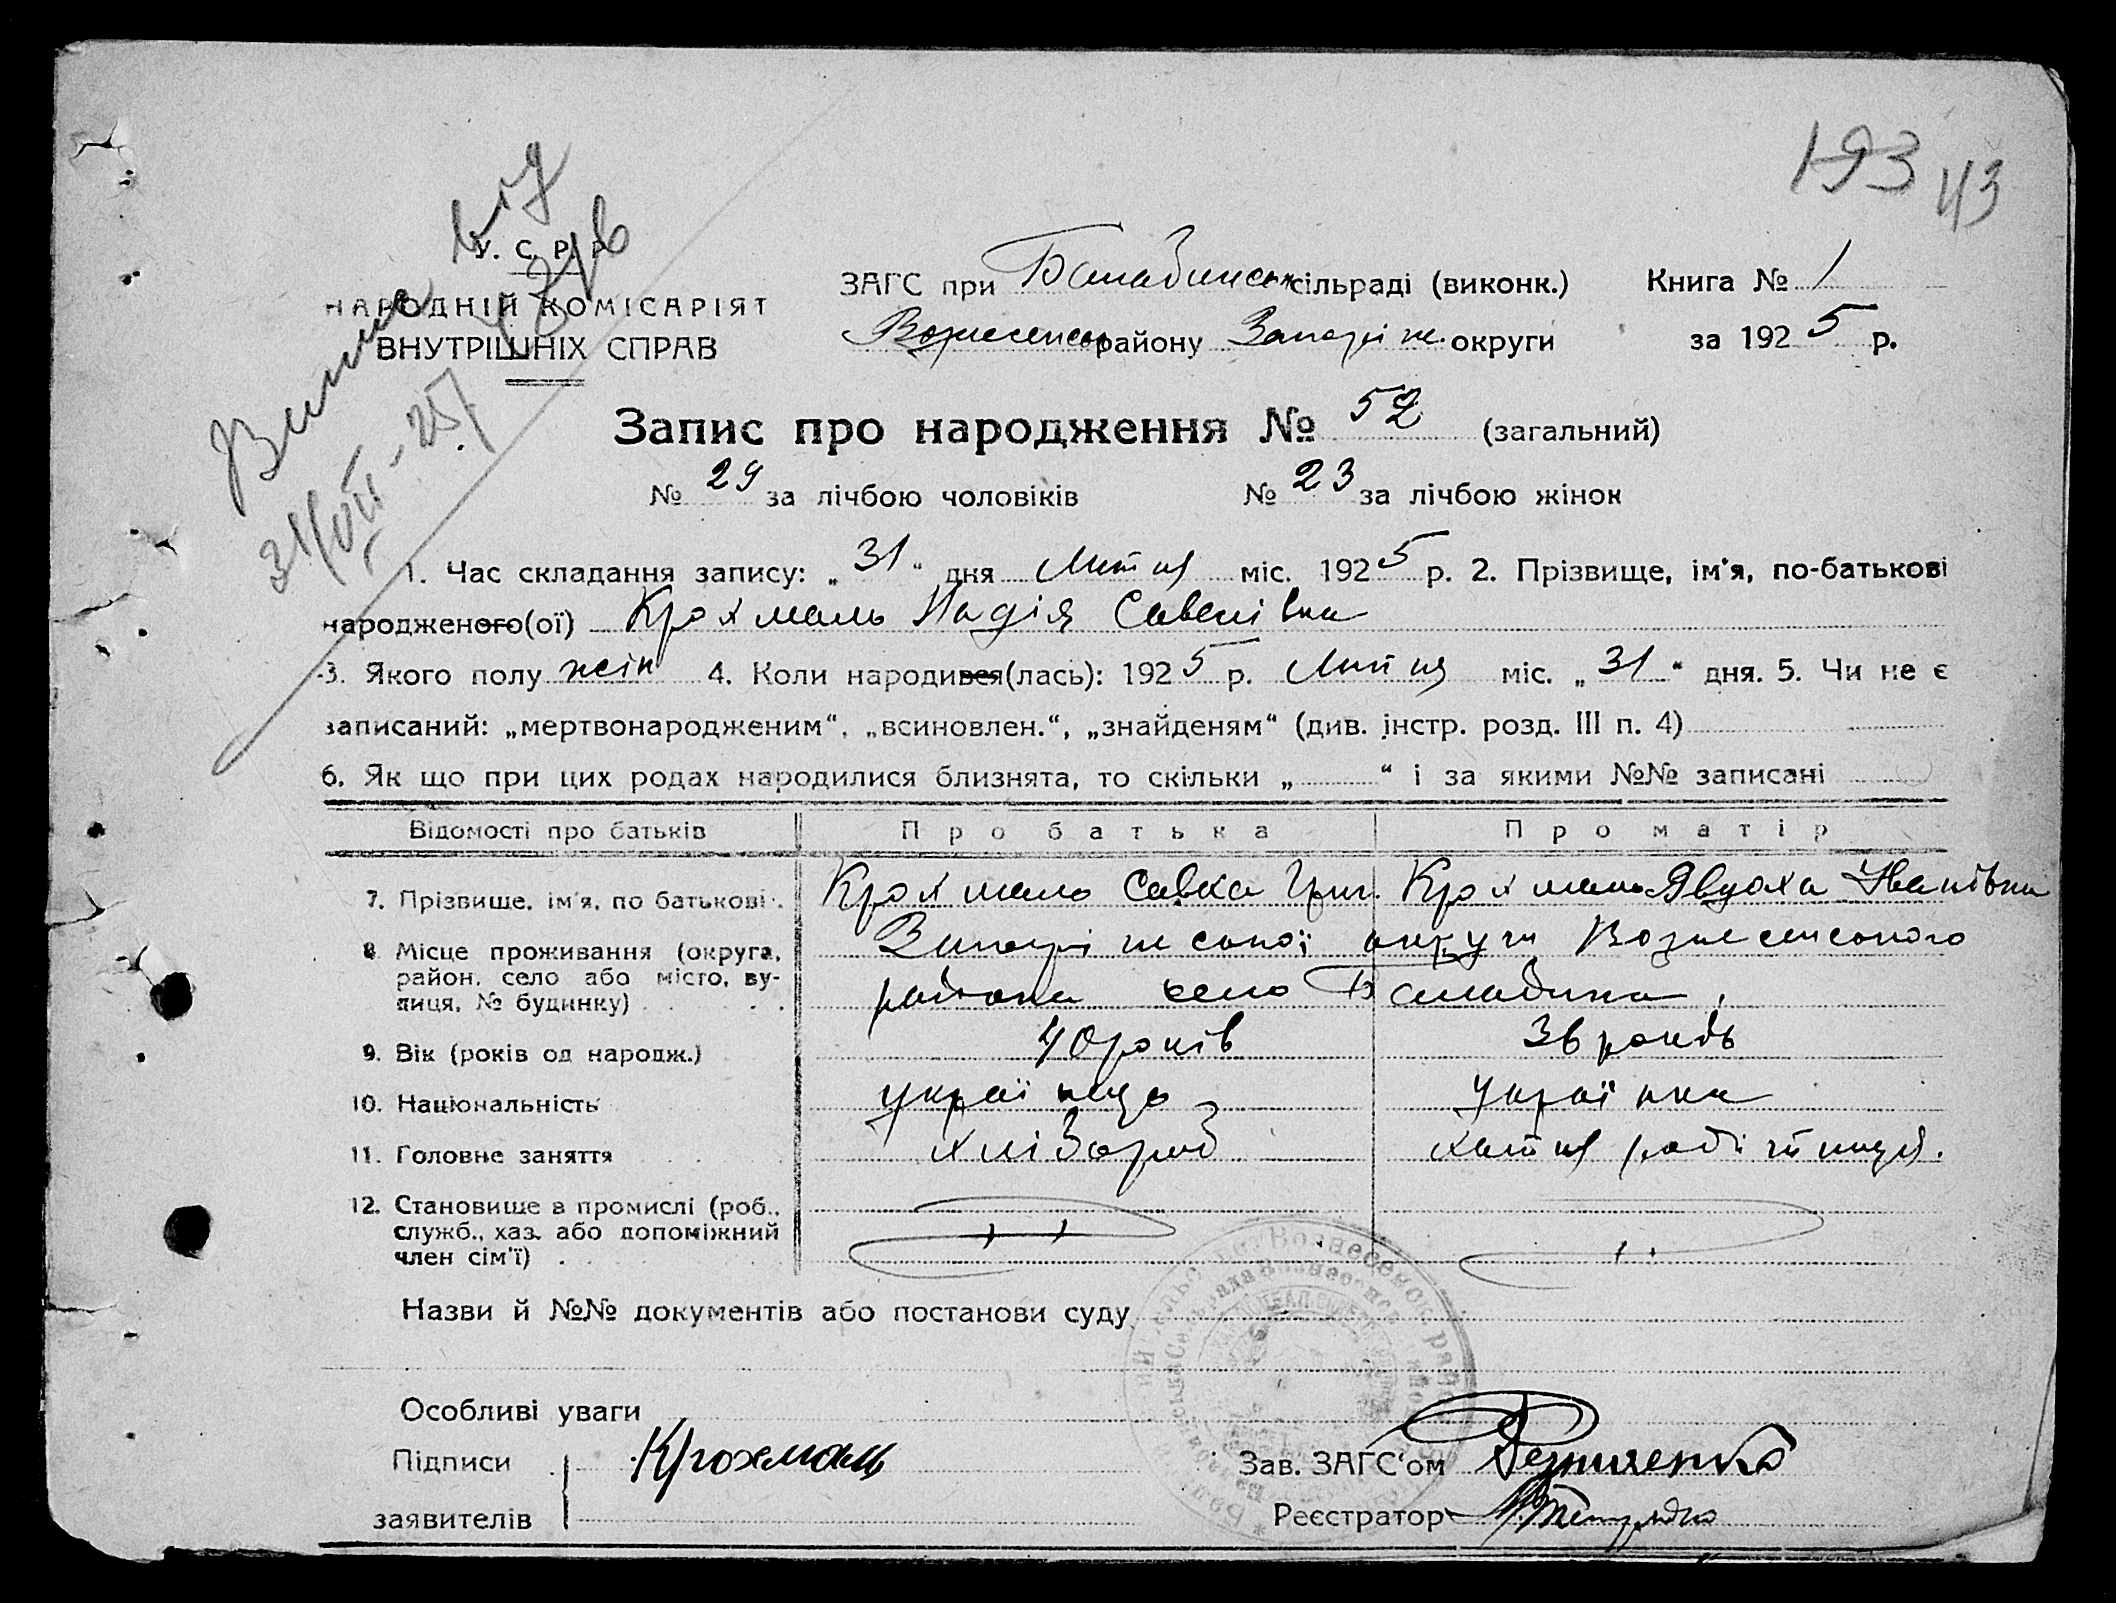 193 43
У. С. Р. Р.
НАРОДНІЙ КОМІСАРІЯТ
ВНУТРІШНІХ СПРАВ
ЗАГС при Балабинськ сільраді (виконк.) Книга № 1
Вознесенськ району Запоріж. округи за 1925 р.
Запис про народження № 52 (загальний)
№ 29 за лічбою чоловіків № 23 за лічбою жінок
1. Час складання запису: „31“ дня Липня міс. 1925 р. 2. Прізвище, ім'я, по-батькові
народженого(ої) Крохмаль Надія Савелівна
3. Якого полу жін 4. Коли народився(лась): 1925 р. Липня міс. „31“ дня. 5. Чи не є
записаний: „мертвонародженим“, „всиновлен.“, „знайденям“ (див. інстр. розд. III п. 4)
6. Як що при цих родах народилися близнята, то скільки „ “ і за якими №№ записані
Відомості про батьків Про батька Про матір
7. Прізвище, ім'я, по батькові Крохмаль Савка Григ. Крохмаль Явдоха Іванівна
8. Місце проживання (округа, район, село або місто, вулиця, № будинку) Запоріжської округи Вознесенського
района село Балабина
9. Вік (років од народж.) 40 років 36 років
10. Національність українць українка
11. Головне заняття хлібороб хатня робітниця.
12. Становище в промислі (роб.,
служб., хаз. або допоміжний
член сім'ї)
Назви й №№ документів або постанови суду
Особливі уваги
Підписи Крохмаль Зав. ЗАГС'ом
заявителів Реєстратор